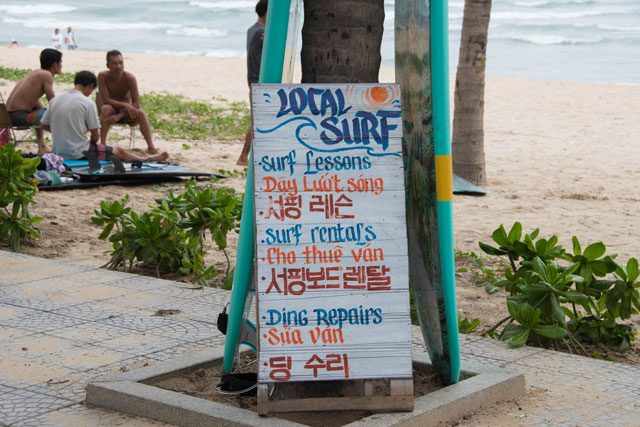 LOCAL
SURF
·Surf Lessons
Dạy Lướt sóng
·서핑 레슨
·surf rentals
Cho thuê ván
·서핑보드렌탈
·Ding Repairs
·Sửa ván
·딩 수리